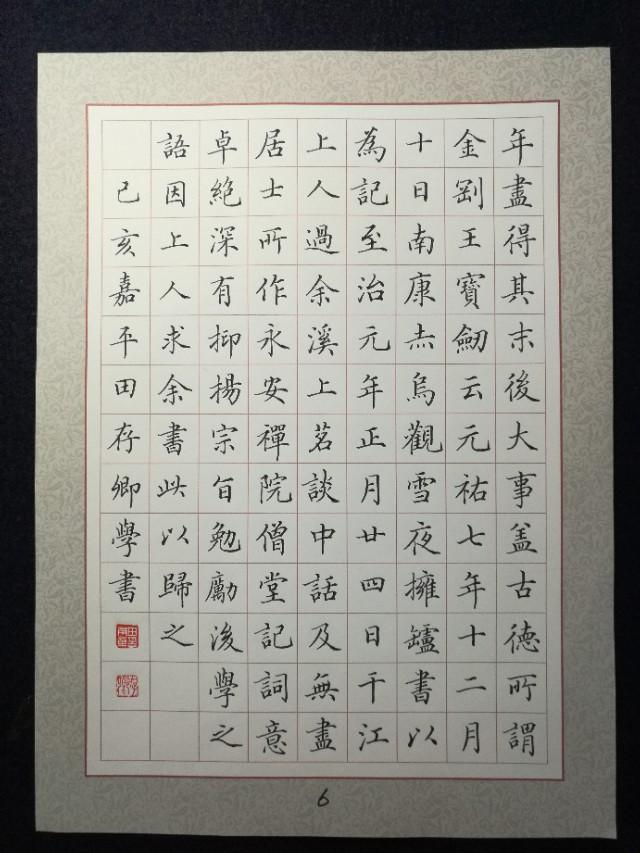 年盡得其末後大事盖古德所謂
金剛王寶劒云元祐七年十二月
十日南康赤烏觀雪夜擁罏書以
為記至治元年正月廿四日千江
上人過余溪上茗談中話及無盡
居士所作永安禪院僧堂記詞意
卓絕深有抑揚宗旨勉勵後學之
語因上人求余書此以歸之
己亥嘉平田存卿學書
6